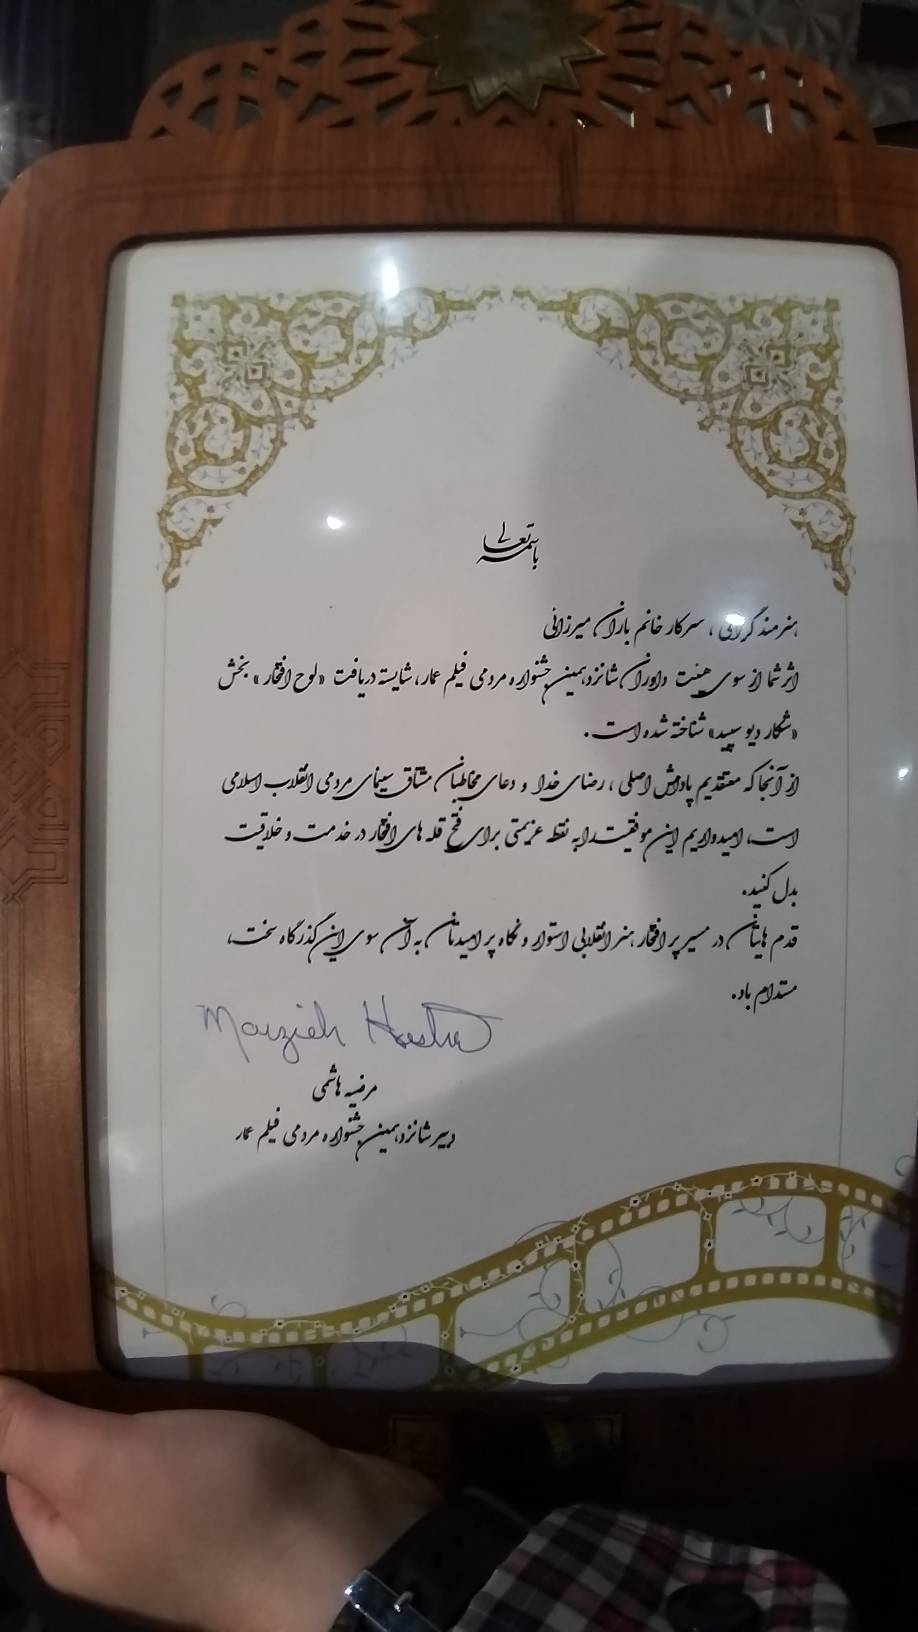 باسمه تعالی
هنرمند گرامی ، سرکار خانم باران میرزائی
اثر شما از سوی هیئت داوران شانزدهمین جشنواره مردمی فیلم عمار، شایسته دریافت «لوح افتخار» بخش
«شکار دیو سپید» شناخته شده است.
از آنجا که معتقدیم پاداش اصلی ، رضای خدا و دعای مخاطبان مشتاق سینمای مردمی انقلاب اسلامی
است، امیدواریم این موفقیت را به نقطه عزیمتی برای فتح قله های افتخار در خدمت و خلاقیت
بدل کنید.
قدم هایتان در مسیر پر افتخار هنر انقلابی استوار و نگاه پر امیدتان به آن سوی این گذرگاه سخت،
مستدام باد.
Marzieh Hashe
مرضیه هاشمی
دبیر شانزدهمین جشنواره مردمی فیلم عمار